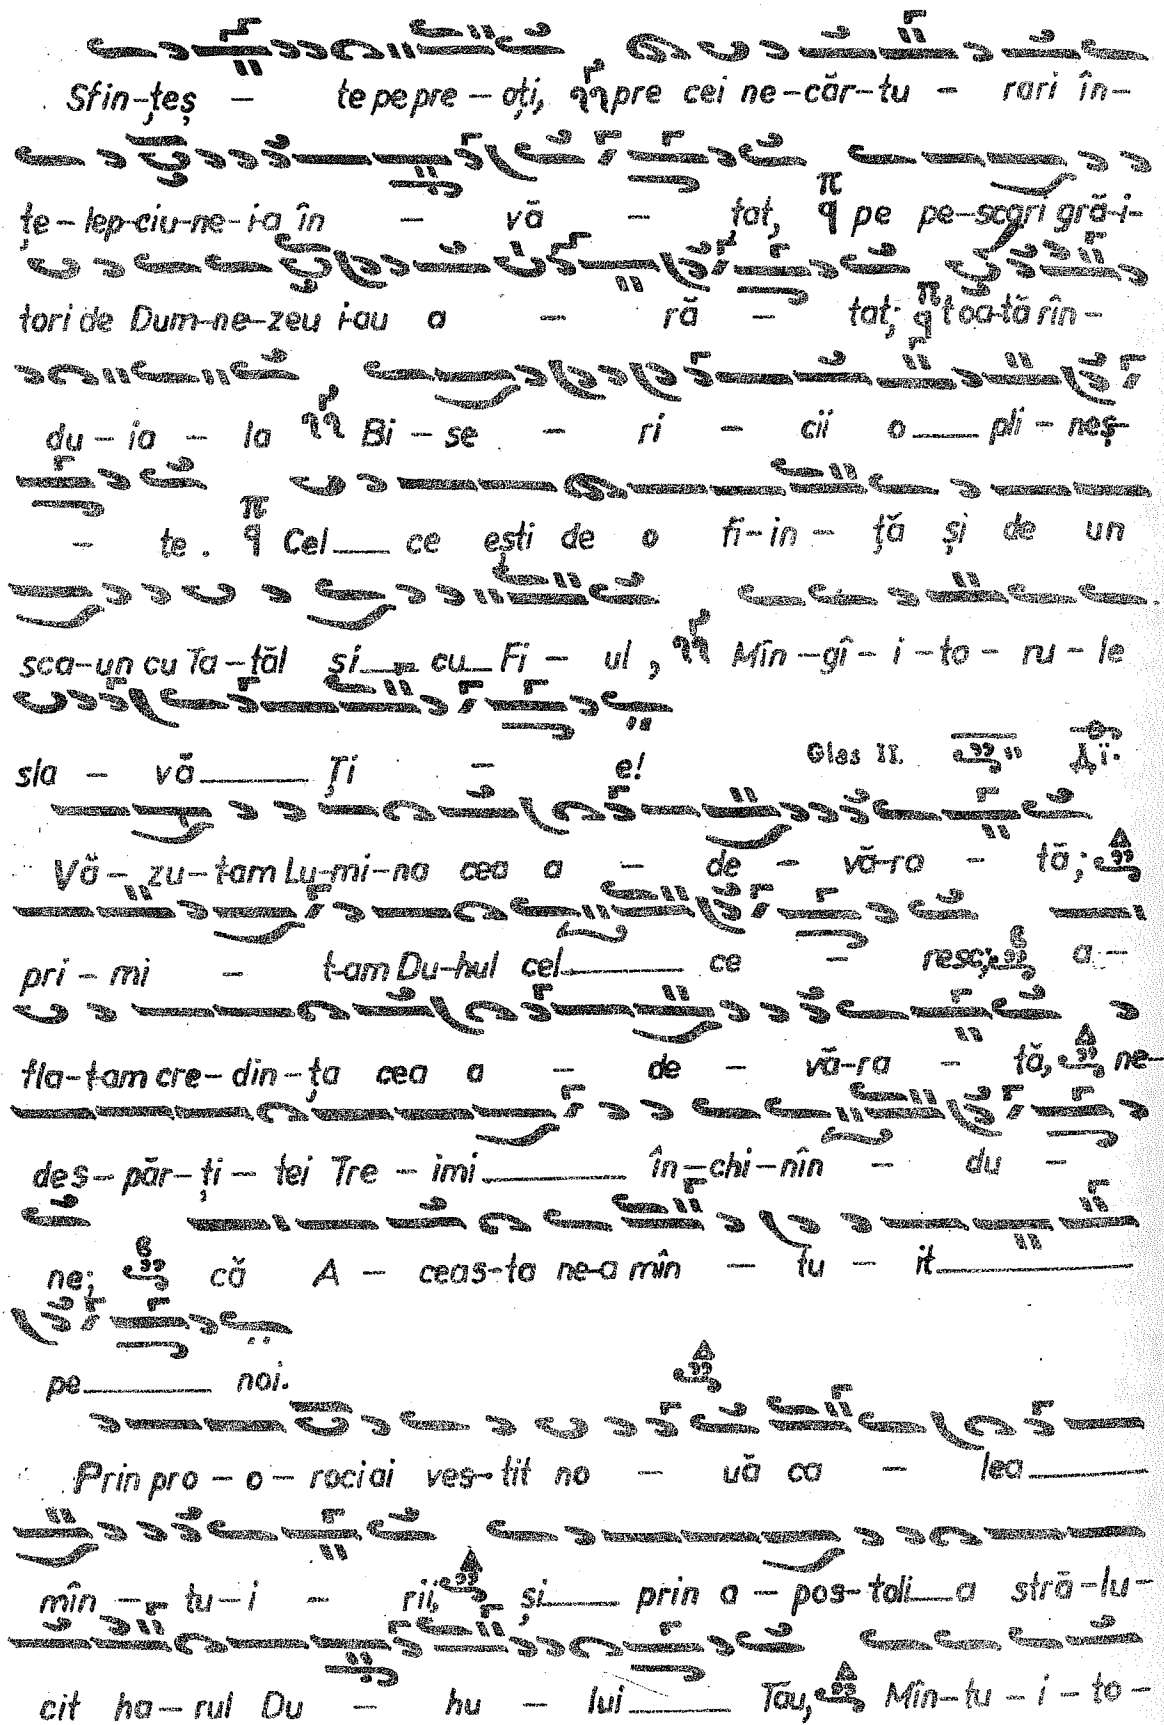 Sfin-țeș - te pe pre - oți, pre cei ne-căr-tu - rari în-
țe-lep-ciu-ne-i-a în - vă - țat, π pe pe-scari gră-i-
tori de Dum-ne-zeu i-au a - ră - tat; π toa-tă rîn-
du-ia - la Bi-se - ri - cii o___ pli-neș-
- te. π Cel___ ce ești de o fi-in - ță și de un
sca-un cu Ta-tăl și___ cu___ Fi - ul, Mîn-gî-i-to-ru-le
sla - vă___ Ți - e! Glas II.
Vă-zu-t-am Lu-mi-na cea a - de - vă-ra - tă;
pri-mi - t-am Du-hul cel___ ce - resc; a-
fla-t-am cre-din-ța cea a - de - vă-ra - tă, ne-
des-păr-ți-tei Tre-imi___ în-chi-nîn - du -
ne; că A-ceas-ta ne-a mîn - tu - it___
pe___ noi.
Prin pro-o-roci ai ves-tit no - uă ca - lea___
mîn - tu-i - rii, și___ prin a-pos-toli___ a stră-lu-
cit ha-rul Du - hu - lui___ Tău, Mîn-tu-i-to-